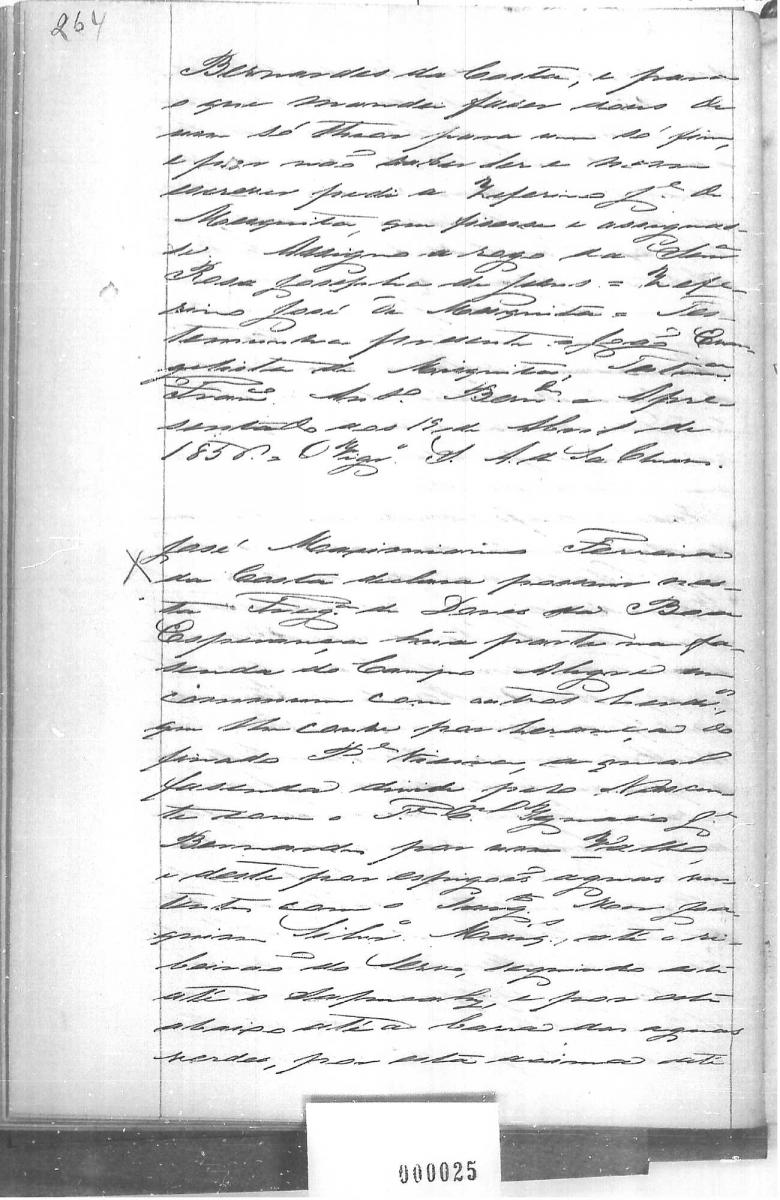 264
Bernardes da Costa, e para
o que mandei fazer dous de
um só theor para um só fim,
e por não saber ler e nem
escrever pedi a Zeferino Je. de
Mesquita, que fizesse e assignas-
se. Assigno a rogo da Senra.
Rosa Josepha de Jesus = Zefe-
rino José de Mesquita = Tes-
temunha presente = João Evan-
gelista de Mesquita,
Franco. Anto. Berndes. = Apre-
sentado aos 19 de Abril de
1856. = O Vigro.
José Maximiano Ferreira
da Costa declara possuir nes-
ta Fregª de Dores da Boa
Esperança húa parte na fa-
senda do Campo Alegre em
commum com outros herdros,
que lhe coube por herança do
finado Pe. Vieira, a qual
fazenda divide pelo Nascen-
te com o Ignacio Je.
Bernardes por um Vallo,
e deste por espigões aguas ver-
tentes com o Joa-
quim até o ri-
beirão do Servo, seguindo este
até o Sapucahy, e por este
abaixo até a barra das aguas
verdes, por esta acima até
000025